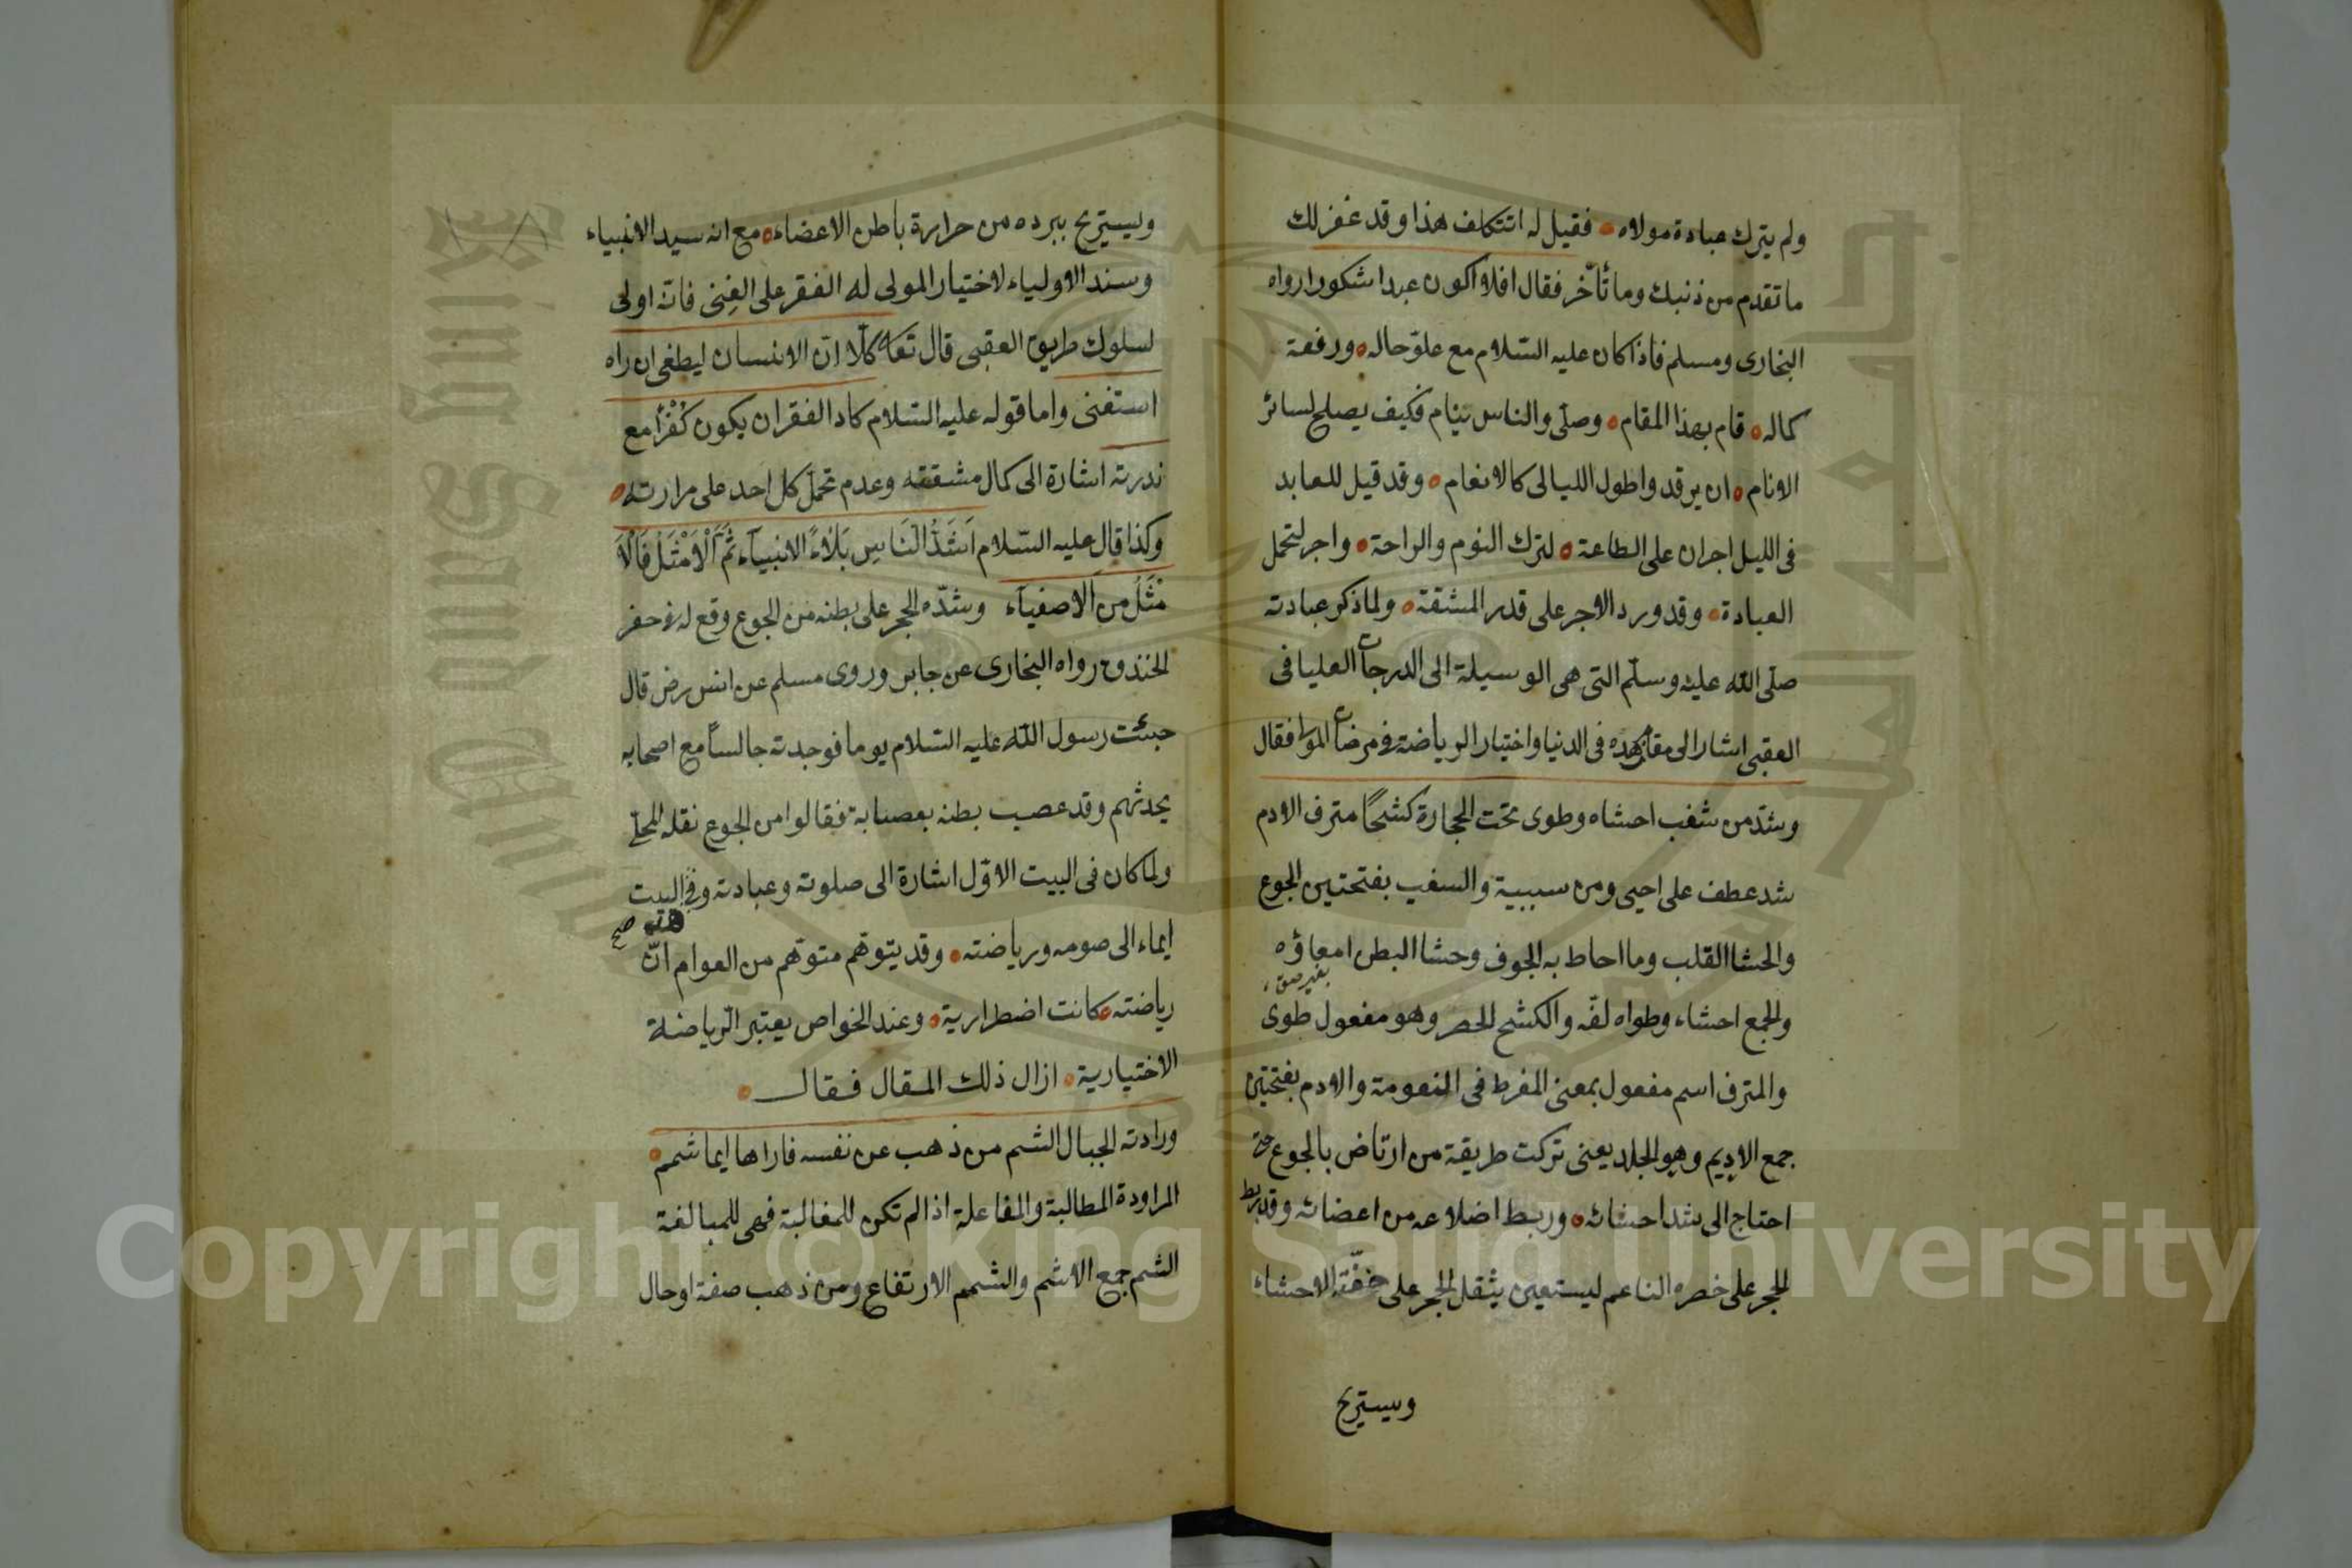 ولم يترك عبادة مولاه فقيل له اتتكلف هذا وقد غفر لك
ما تقدم من ذنبك وما تأخّر فقال افلا اكون عبدا شكورا رواه
البخارى ومسلم فاذا كان عليه السّلام مع علوّ حاله ورفعة
كماله قام بهذا المقام وصلّى والناس نيام فكيف يصلح لسائر
الانام ان يرقد واطول الليالى كالانعام وقد قيل للعابد
فى الليل اجران على الطاعة لترك النوم والراحة واجر لتحمل
العبادة وقد ورد الاجر على قدر المشقة ولما ذكر عبادته
صلّى الله عليه وسلّم التى هى الوسيلة الى الدرجات العليا فى
العقبى اشار الى مقام زهده فى الدنيا واختيار الرياضة فى مرضات المولى فقال
وشدّ من سغب احشاه وطوى تحت الحجارة كشحًا مترف الادم
شد عطف على احيى ومن سببية والسغب بفتحتين الجوع
والحشا القلب وما احاط به الجوف وحشا البطن امعاؤه
والجمع احشاء وطواه لفّه والكشح الخصر وهو مفعول طوى
والمترف اسم مفعول بمعنى المفرط فى النعومة والادم بفتحتين
جمع الاديم وهو الجلد يعنى تركت طريقة من ارتاض بالجوع حتى
احتاج الى شد احشائه وربط اضلاعه من اعضائه وقد ربط
الحجر على خصره الناعم ليستعين بثقل الحجر على خفّة الاحشاء
ويستريح
ويستريح ببرده من حرارة باطن الاعضاء مع انه سيد الانبياء
وسند الاولياء لاختيار المولى له الفقر على الغِنى فانّه اولى
لسلوك طريق العقبى قال تعا كلّا انّ الانسان ليطغى ان راه
استغنى واما قوله عليه السّلام كاد الفقر ان يكون كُفْرًا مع
ندرته اشارة الى كمال مشققه وعدم تحمّل كل احد على مرارته
وكذا قال عليه السّلام اَشَدُّ النَاسِ بَلَاءً الانبيآء ثُمَّ الْاَمْثَلُ فَالْاَ
مْثَلُ مِن الاصفيآء وشدّه الحجر على بطنه من الجوع وقع له فى حفر
الخندق رواه البخارى عن جابر وروى مسلم عن انس رض قال
جئت رسول الله عليه السّلام يوما فوجدته جالسًا مع اصحابه
يحدثهم وقد عصب بطنه بعصابة فقالوا من الجوع نقله المحلّى
ولما كان فى البيت الاوّل اشارة الى صلوته وعبادته وفى البيت
هذه صح
ايماء الى صومه ورياضته وقد يتوهّم متوهّم من العوام انّ
رياضته كانت اضطرارية وعند الخواص يعتبر الرّياضة
الاختيارية ازال ذلك المقال فقال
وراودته الجبال الشم من ذهب عن نفسه فاراها ايما شمم
المراودة المطالبة والمفاعلة اذا لم تكن للمغالبة فهى للمبالغة
الشم جمع الاشم والشمم الارتفاع ومن ذهب صفة او حال
Copyright © King Saud University